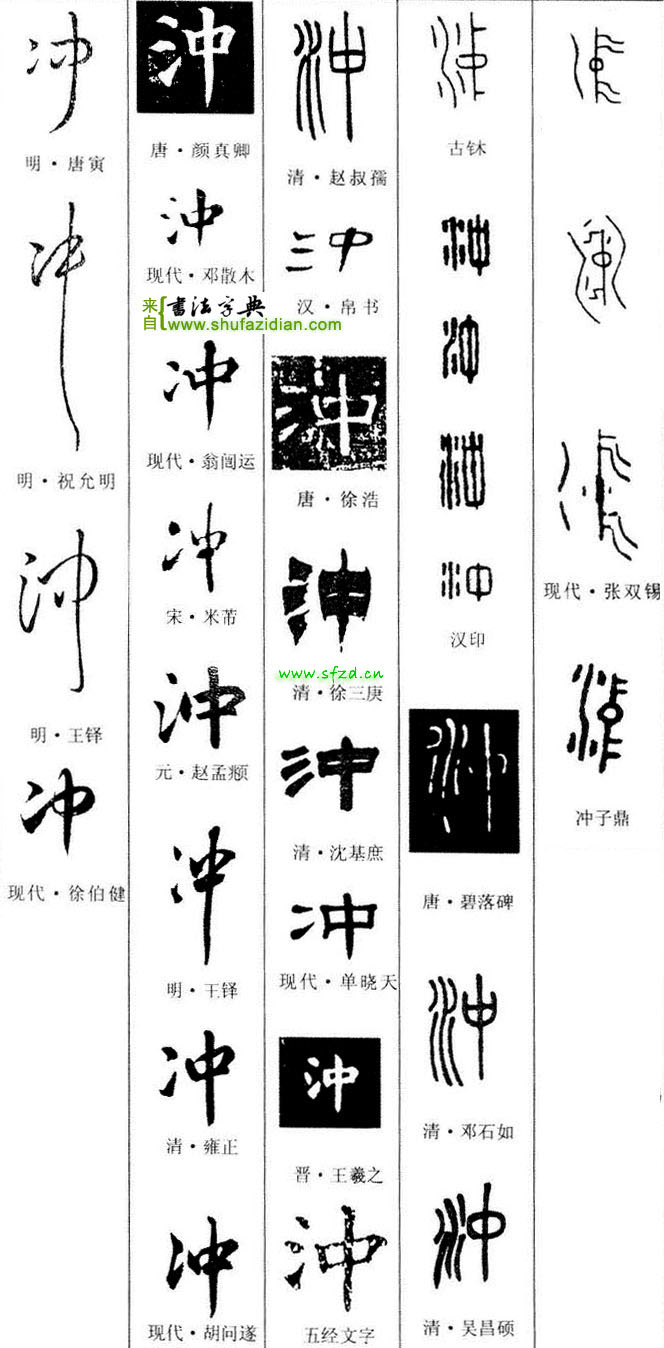 冲
明·唐寅
冲
明·祝允明
沖
明·王铎
冲
现代·徐伯健
沖
唐·颜真卿
沖
现代·邓散木
来自{书法字典
www.shufazidian.com
冲
现代·翁闿运
冲
宋·米芾
沖
元·赵孟頫
冲
明·王铎
冲
清·雍正
冲
现代·胡问遂
沖
清·赵叔孺
沖
汉·帛书
沖
唐·徐浩
沖
www.sfzd.cn
清·徐三庚
沖
清·沈基庶
冲
现代·单晓天
沖
晋·王羲之
沖
五经文字
沖
古鉥
沖
沖
沖
沖
汉印
沖
唐·碧落碑
沖
清·邓石如
沖
清·吴昌硕
沖
沖
沖
现代·张双锡
沖
冲子鼎